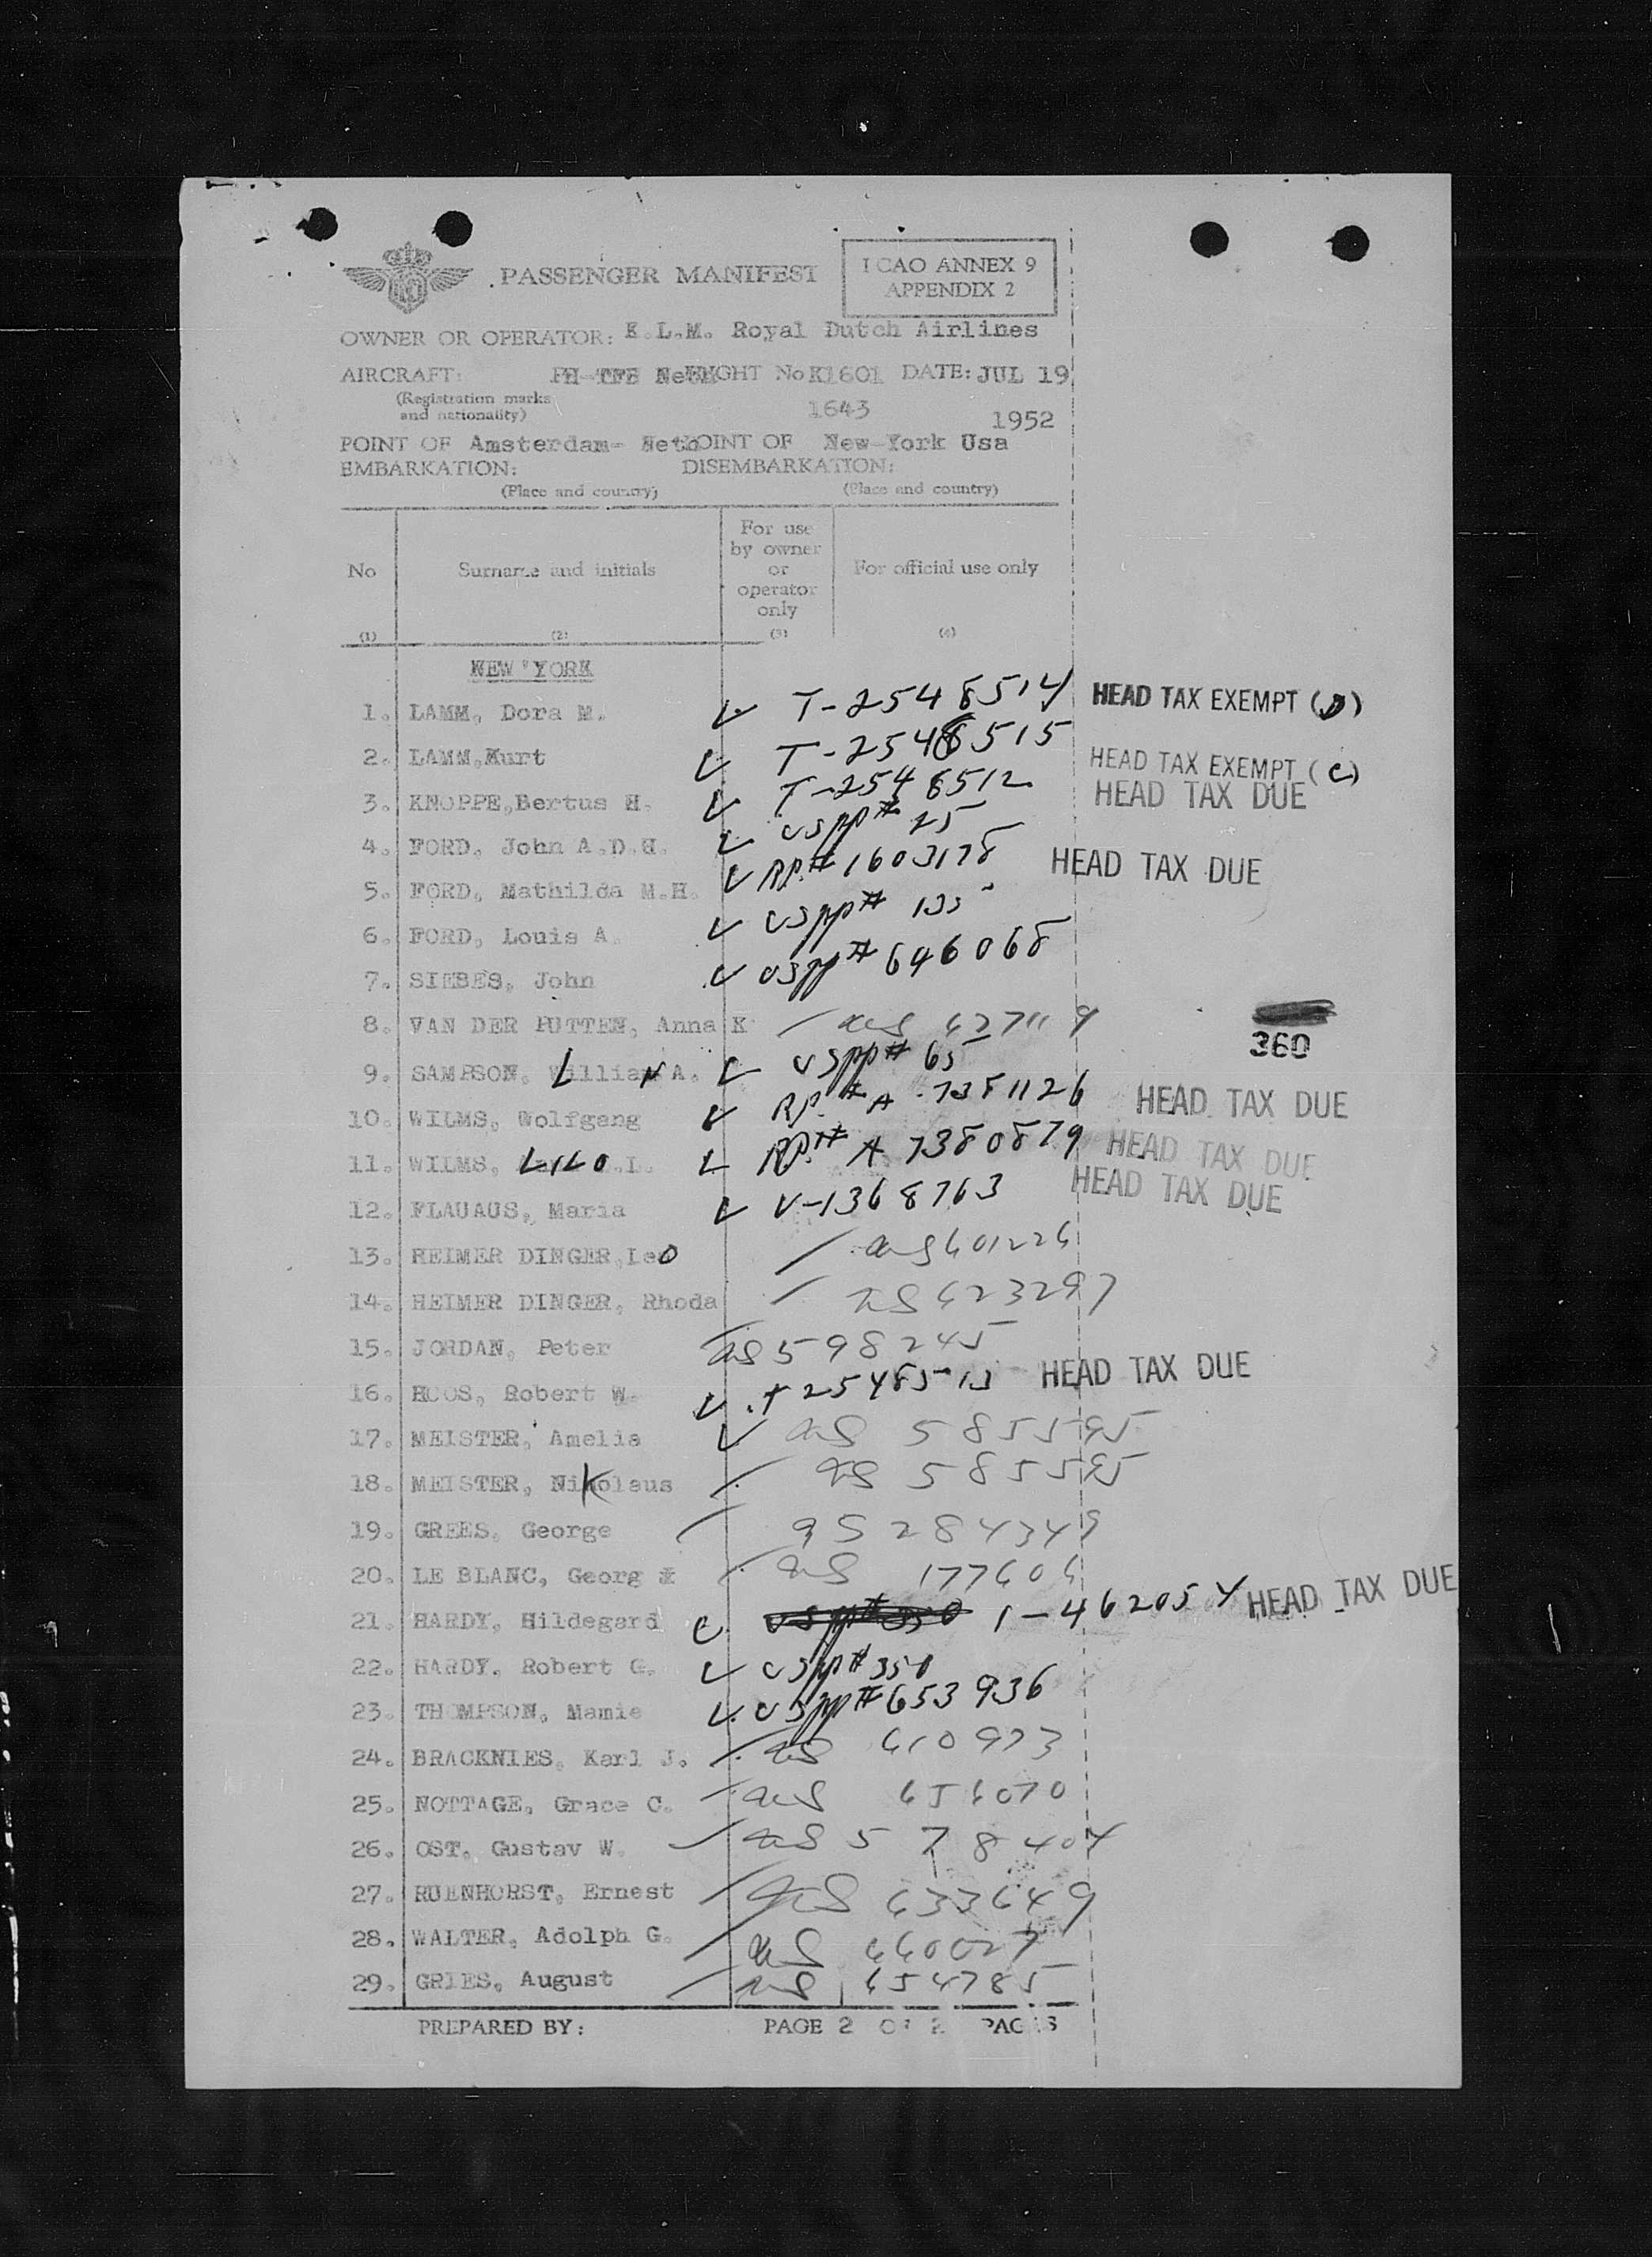 PASSENGER MANIFEST
I CAO ANNEX 9
APPENDIX 2
OWNER OR OPERATOR: K.L.M. Royal Dutch Airlines
AIRCRAFT: PH-TFE FLIGHT No K1601 DATE: JUL 19
(Registration marks
and nationality)
1643
1952
POINT OF Amsterdam- Neth POINT OF New-York Usa
EMBARKATION: DISEMBARKATION:
(Place and country) (Place and country)
For use
by owner
or
operator
only
No Surname and initials For official use only
(1) (2) (3) (4)
NEW YORK
1. LAMM, Dora M. T-2548514 HEAD TAX EXEMPT (D)
2. LAMM,Kurt T-2548515 HEAD TAX EXEMPT (C)
3. KNOPPE,Bertus H. T-2548512 HEAD TAX DUE
4. FORD, John A.D.H. USpp# 25
5. FORD, Mathilda M.H. RP.# 1603178 HEAD TAX DUE
6. FORD, Louis A. USpp# 135
7. SIEBES, John USpp# 646068
8. VAN DER PUTTEN, Anna K 627119
360
9. SAMPSON, LillianA. USpp# 65
10. WILMS, Wolfgang RP.# A-7381126 HEAD TAX DUE
11. WILMS, LILO.I. RP.# A 7380879 HEAD TAX DUE
12. FLAUAUS, Maria V-1368763 HEAD TAX DUE
13. HEIMER DINGER,Leo 601226
14. HEIMER DINGER, Rhoda 623297
15. JORDAN, Peter 598245
16. HOOS, Robert W. T 2548513 HEAD TAX DUE
17. MEISTER, Amelia 585595
18. MEISTER, Nikolaus 585585
19. GREES, George 284349
20. LE BLANC, Georg 177606
21. HARDY, Hildegard 1-462054 HEAD TAX DUE
22. HARDY, Robert G. USpp# 350
23. THOMPSON, Mamie USpp# 653936
24. BRACKNIES, Karl J. 610973
25. NOTTAGE, Grace C. 656070
26. OST, Gustav W. 578404
27. RUENHORST, Ernest 633649
28. WALTER, Adolph G. 660027
29. GRIES, August 654785
PREPARED BY: PAGE 2 OF 2 PAGES